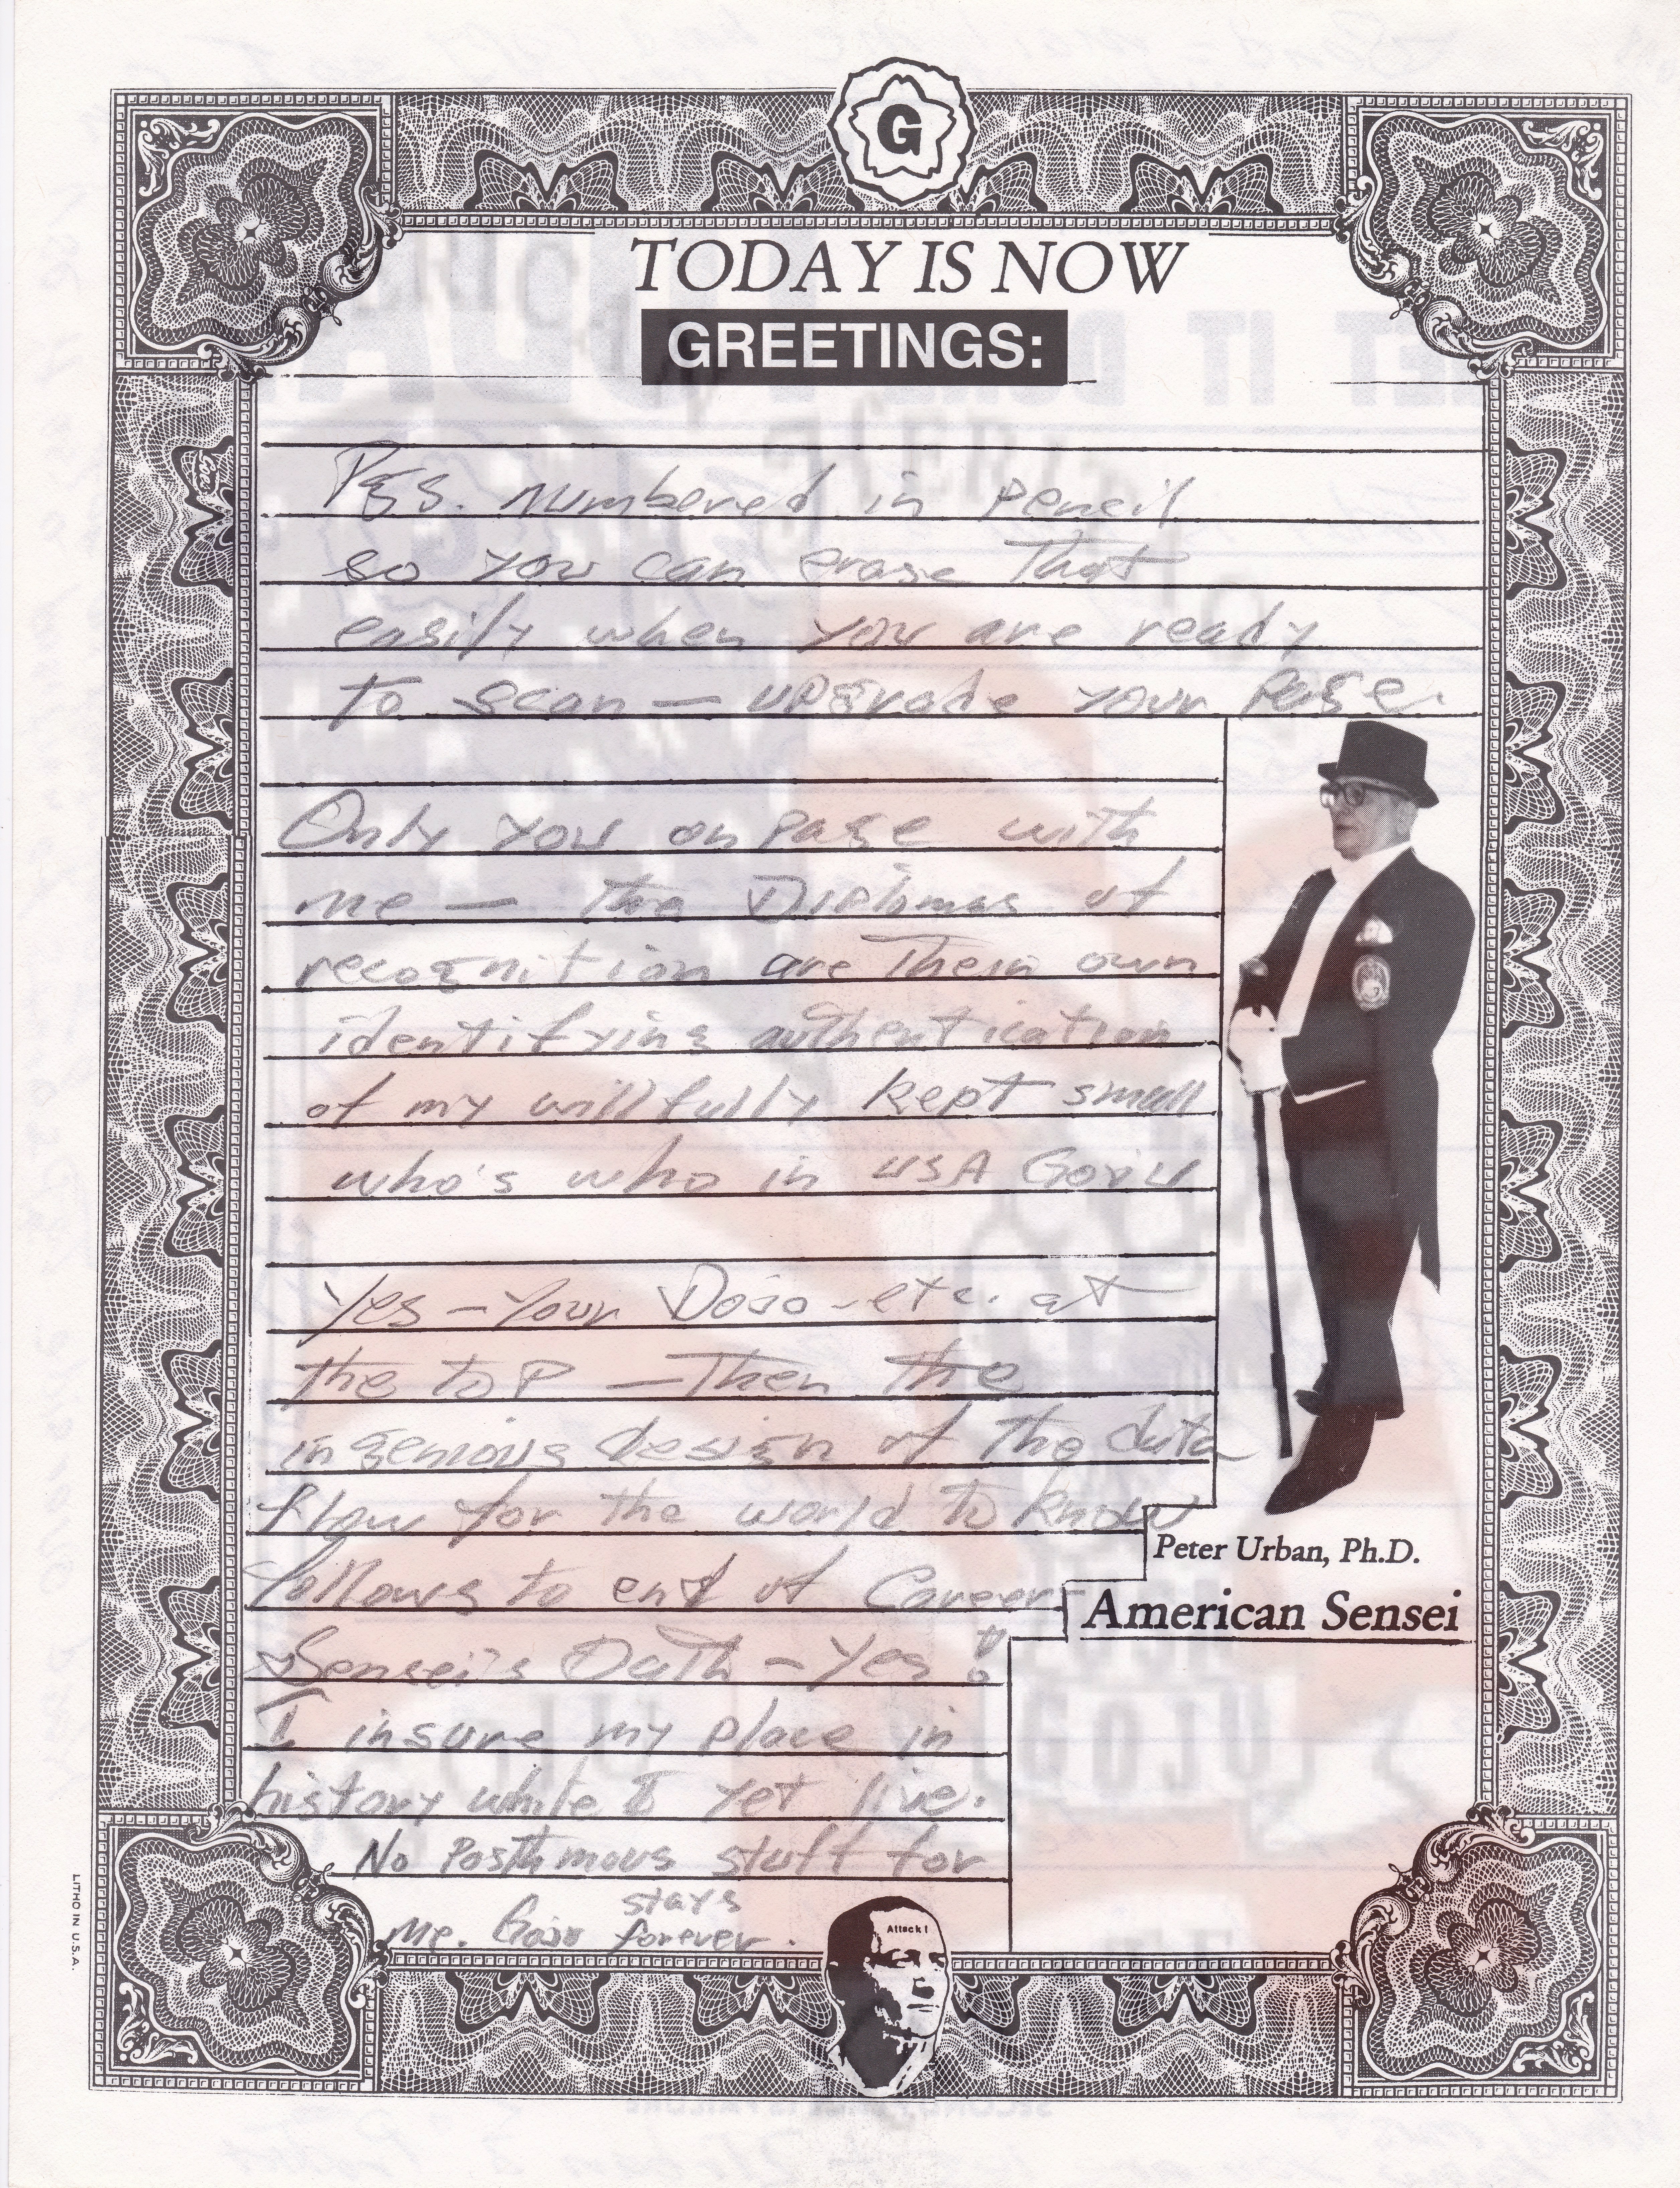 G
TODAY IS NOW
GREETINGS:
Pgs. numbered in pencil
so you can erase That
easily when you are ready
to scan — upgrade your Page.
Only you on Page with
me — the Diplomas of
recognition are Their own
identifying authentication
of my willfully kept small
who's who in USA GoJu
Yes — Your Dojo - etc. at
the top — Then the
ingenious design of The data
flow for the world to know
follows to end of Career
Sensei's Oath - Yes !
I insure my place in
history while I yet live.
No Posthmous stuff for
stays
me. Goju forever.
Peter Urban, Ph.D.
American Sensei
Attack!
LITHO IN U.S.A.